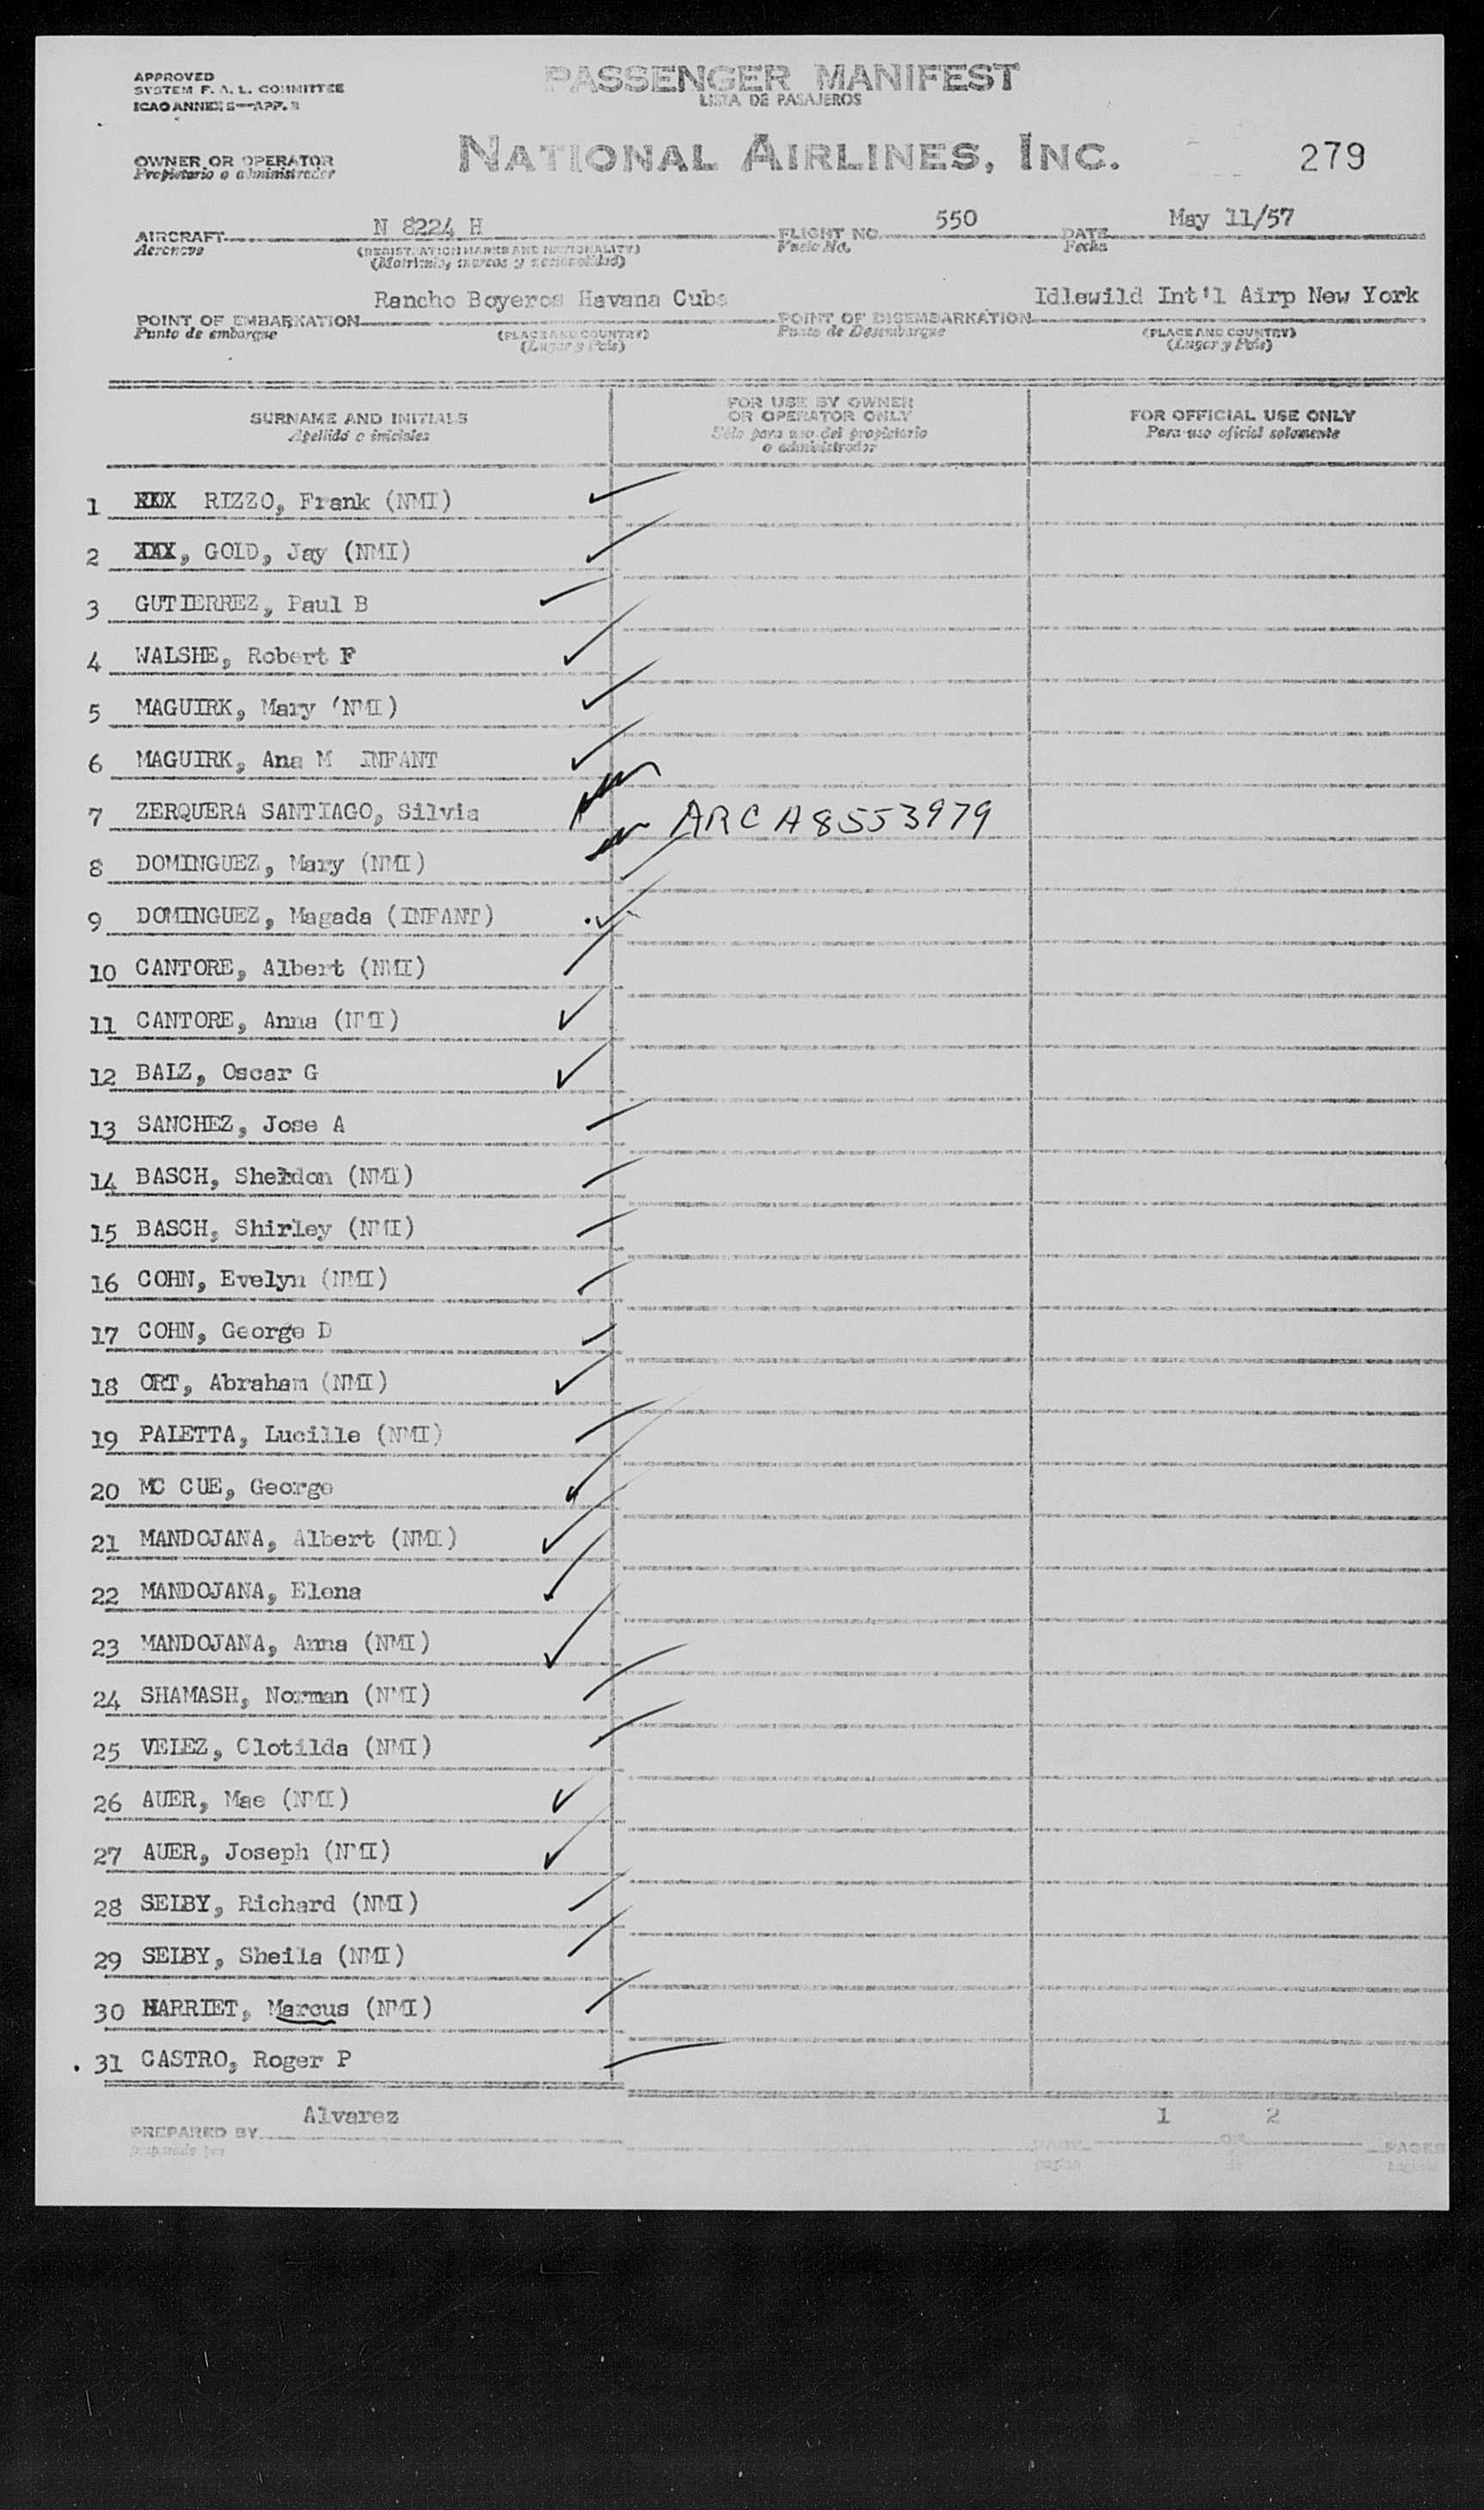 APPROVED
SYSTEM F. A. L. COMMITTEE
ICAO ANNEX 9—APP. 2
PASSENGER MANIFEST
LISTA DE PASAJEROS
OWNER OR OPERATOR
Propietario o administrador
NATIONAL AIRLINES, INC.
279
AIRCRAFT N 8224 H FLIGHT NO. 550 DATE May 11/57
Aeronave (REGISTRATION MARKS AND NATIONALITY) Vuelo No. Fecha
(Matricula, marcas y nacionalidad)
POINT OF EMBARKATION Rancho Boyeros Havana Cuba POINT OF DISEMBARKATION Idlewild Int'l Airp New York
Punto de embarque (PLACE AND COUNTRY) Punto de Desembarque (PLACE AND COUNTRY)
(Lugar y Pais) (Lugar y Pais)
SURNAME AND INITIALS
Apellido e iniciales
FOR USE BY OWNER
OR OPERATOR ONLY
Sólo para uso del propietario
o administrador
FOR OFFICIAL USE ONLY
Para uso oficial solamente
1 RIZZO, Frank (NMI)
2 XXX, GOLD, Jay (NMI)
3 GUTIERREZ, Paul B
4 WALSHE, Robert F
5 MAGUIRK, Mary (NMI)
6 MAGUIRK, Ana M INFANT
7 ZERQUERA SANTIAGO, Silvia ARC A8553979
8 DOMINGUEZ, Mary (NMI)
9 DOMINGUEZ, Magada (INFANT)
10 CANTORE, Albert (NMI)
11 CANTORE, Anna (NMI)
12 BALZ, Oscar G
13 SANCHEZ, Jose A
14 BASCH, Sheldon (NMI)
15 BASCH, Shirley (NMI)
16 COHN, Evelyn (NMI)
17 COHN, George D
18 ORT, Abraham (NMI)
19 PALETTA, Lucille (NMI)
20 MC CUE, George
21 MANDOJANA, Albert (NMI)
22 MANDOJANA, Elena
23 MANDOJANA, Anna (NMI)
24 SHAMASH, Norman (NMI)
25 VELEZ, Clotilda (NMI)
26 AUER, Mae (NMI)
27 AUER, Joseph (NMI)
28 SELBY, Richard (NMI)
29 SELBY, Sheila (NMI)
30 HARRIET, Marcus (NMI)
31 CASTRO, Roger P
PREPARED BY Alvarez PAGE 1 OF 2 PAGES
preparado por